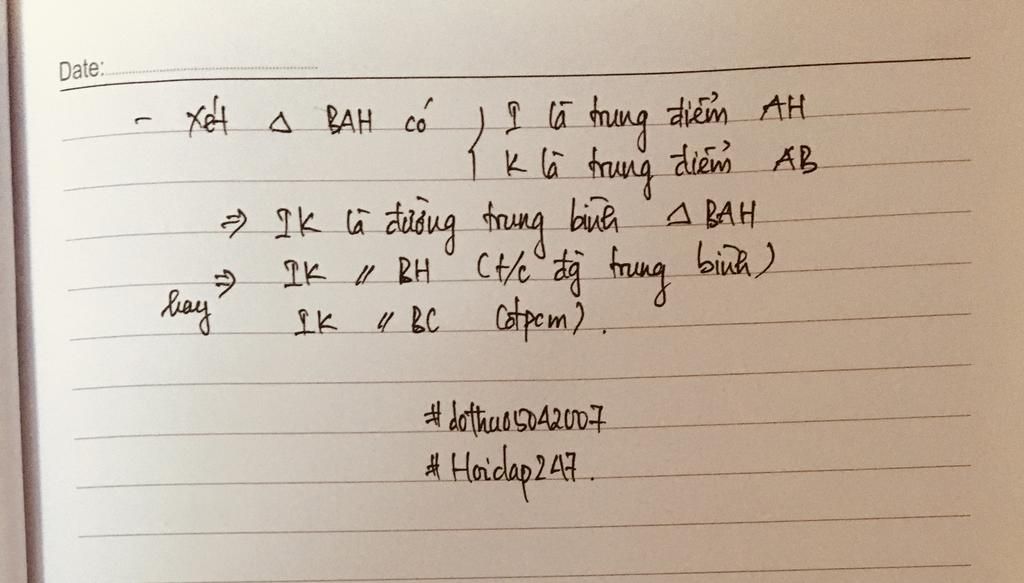 Date:
- Xét Δ BAH có { I là trung điểm AH
K là trung điểm AB
⇒ IK là đường trung bình Δ BAH
⇒ IK // BH (t/c đg̀ trung bình)
hay IK // BC (đpcm).
#dothu05042007
#Hoidap247.